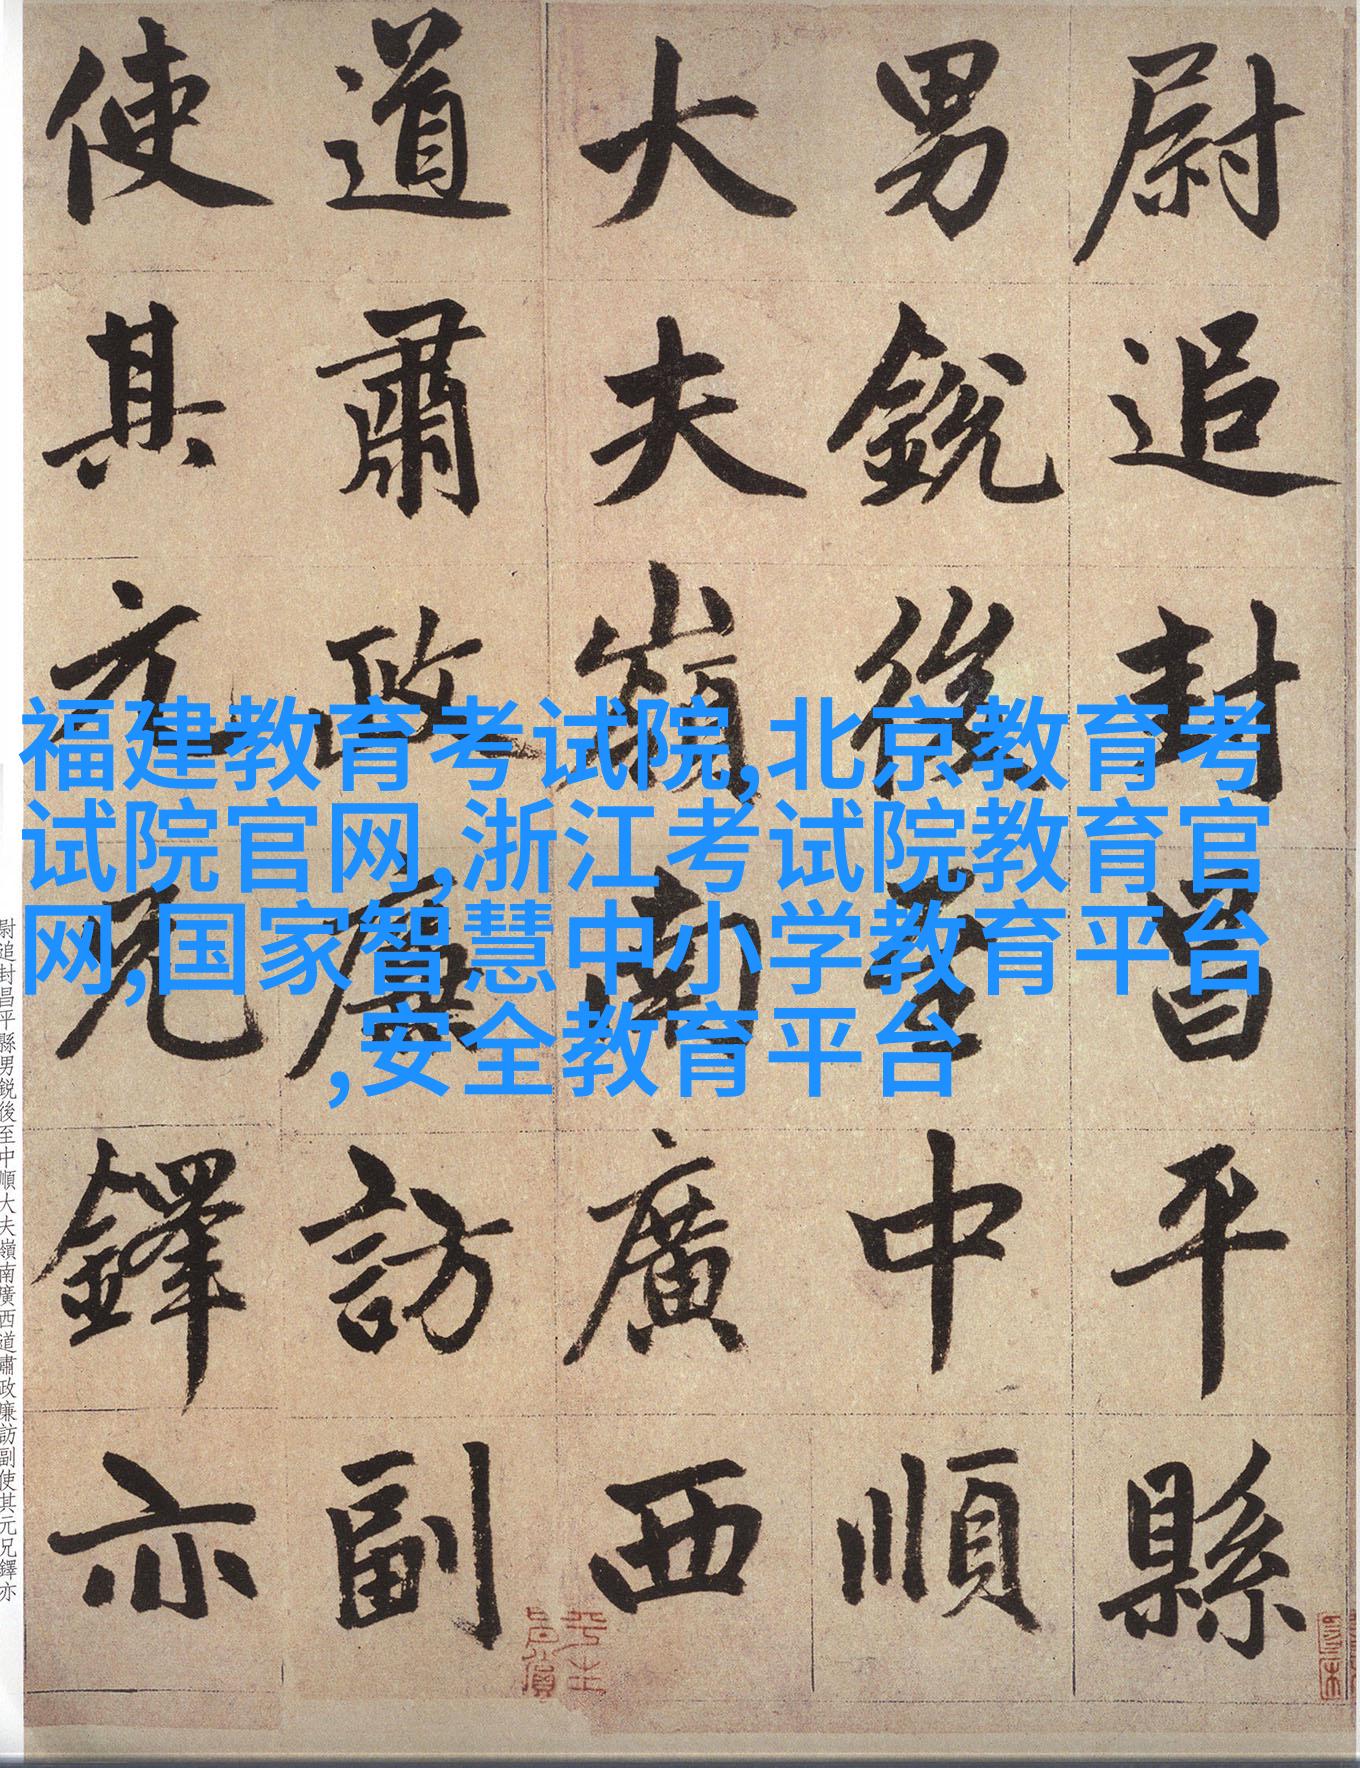 尉追封昌平縣
男銳後至中順
大夫嶺南廣西
道肅政廉訪副
使其元兄鐸亦
福建教育考试院,北京教育考
试院官网,浙江考试院教育官
网,国家智慧中小学教育平台
,安全教育平台
尉追封昌平縣男銳後至中順大夫嶺南廣西道肅政廉訪副使其元兄鐸亦